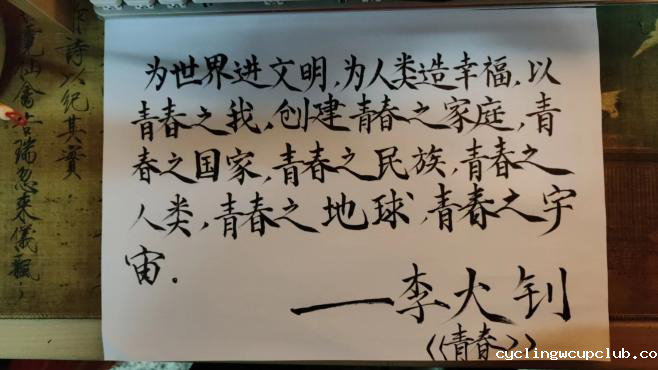 为世界进文明,为人类造幸福,以
青春之我,创建青春之家庭,青
春之国家,青春之民族,青春之
人类,青春之地球,青春之宇
宙.
——李火钊
《青春》
詩以紀其實
仙禽告瑞忽來儀飄
cyclingwcupclub.co